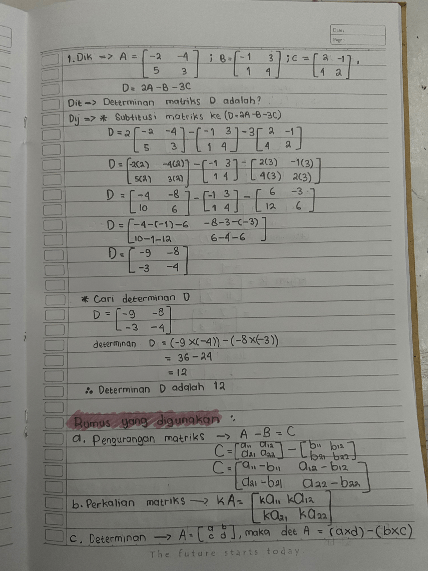 1. Dik => A = [-2 -4; 5 3] ; B = [-1 3; 1 4] ; C = [2 -1; 4 2],
D = 2A - B - 3C
Dit => Determinan matriks D adalah?
Dij => * Subtitusi matriks ke (D=2A-B-3C)
D = 2[-2 -4; 5 3] - [-1 3; 1 4] - 3[2 -1; 4 2]
D = [-2(2) -4(2); 5(2) 3(2)] - [-1 3; 1 4] - [2(3) -1(3); 4(3) 2(3)]
D = [-4 -8; 10 6] - [-1 3; 1 4] - [6 -3; 12 6]
D = [-4-(-1)-6 -8-3-(-3); 10-1-12 6-4-6]
D = [-9 -8; -3 -4]
* Cari determinan D
D = [-9 -8; -3 -4]
determinan D = (-9 x(-4)) - (-8x(-3))
= 36 - 24
= 12
∴ Determinan D adalah 12
Rumus yang digunakan :
a. Pengurangan matriks → A - B = C
C = [a11 a12; a21 a22] - [b11 b12; b21 b22]
C = [a11 - b11 a12 - b12; a21 - b21 a22 - b22]
b. Perkalian matriks → kA = [ka11 ka12; ka21 ka22]
c. Determinan → A = [a b; c d], maka det A = (axd) - (bxc)
The future starts today.